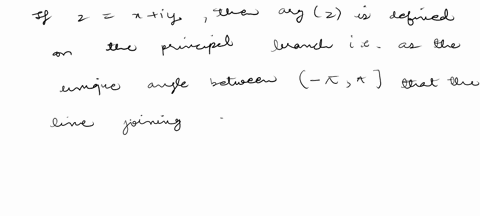 If z = x+iy, then arg(z) is defined
on the principal branch i.e. as the
unique angle between (-π, π] that the
line joining